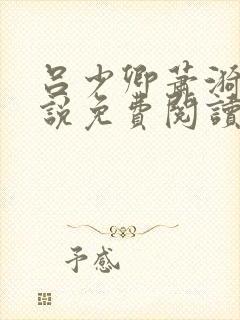 呂少卿蕭漪
說免費閱讀
予感